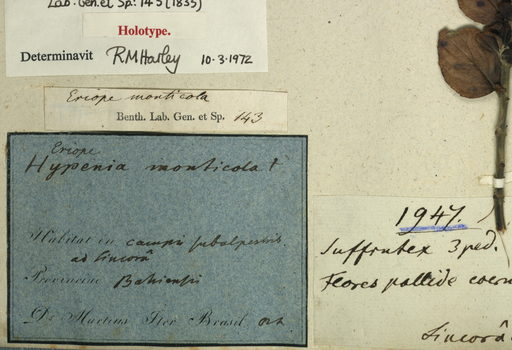 Lab. Gen. et Sp: 145 (1835)
Holotype.
Determinavit RMHarley 10.3.1972
Eriope monticola
Benth. Lab. Gen. et Sp. 143
Eriope
Hypenia monticola
Habitat in campis subalpestris
ad Sincorâ
Provinciae Bahiensis
Dr Martius Iter Brasil.
1947.
Suffrutex 3 ped.
Flores pallide coeru
Sincorâ